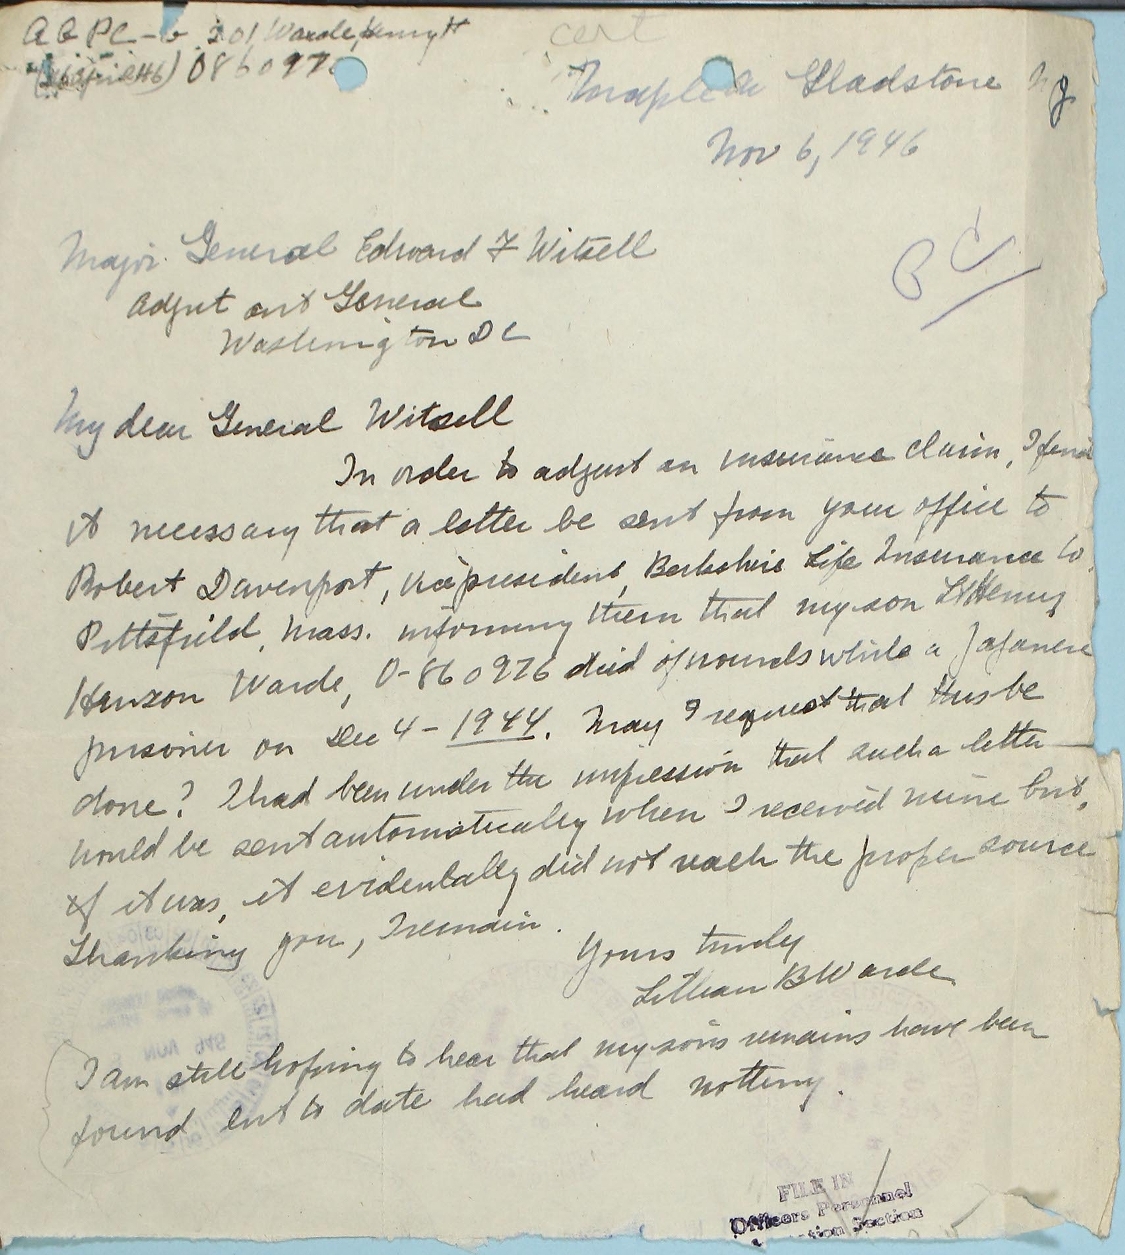 AG PC-G 201 Warde, Henry H
0860976
cert
Maple Gladstone NJ
Nov 6, 1946
Major General Edward F Witsell
Adjut ant General
Washington DC
My dear General Witsell
In order to adjust an insurance claim, I find
it necessary that a letter be sent from your office to
Robert Davenport, vicepresident, Berkshire Life Insurance Co.
Pittsfield, Mass. informing them that my son Lt Henry
Hanzon Warde, O-860976 died of wounds while a Japanese
prisoner on Dec 4 - 1944. May I request that this be
done? I had been under the impression that such a letter
would be sent automatically when I received mine but,
if it was, it evidentally did not reach the proper source
Thanking you, I remain.
Yours truly
Lillian B Warde
I am still hoping to hear that my son's remains have been
found but to date had heard nothing.
FILE IN
Officers Personnel
Section